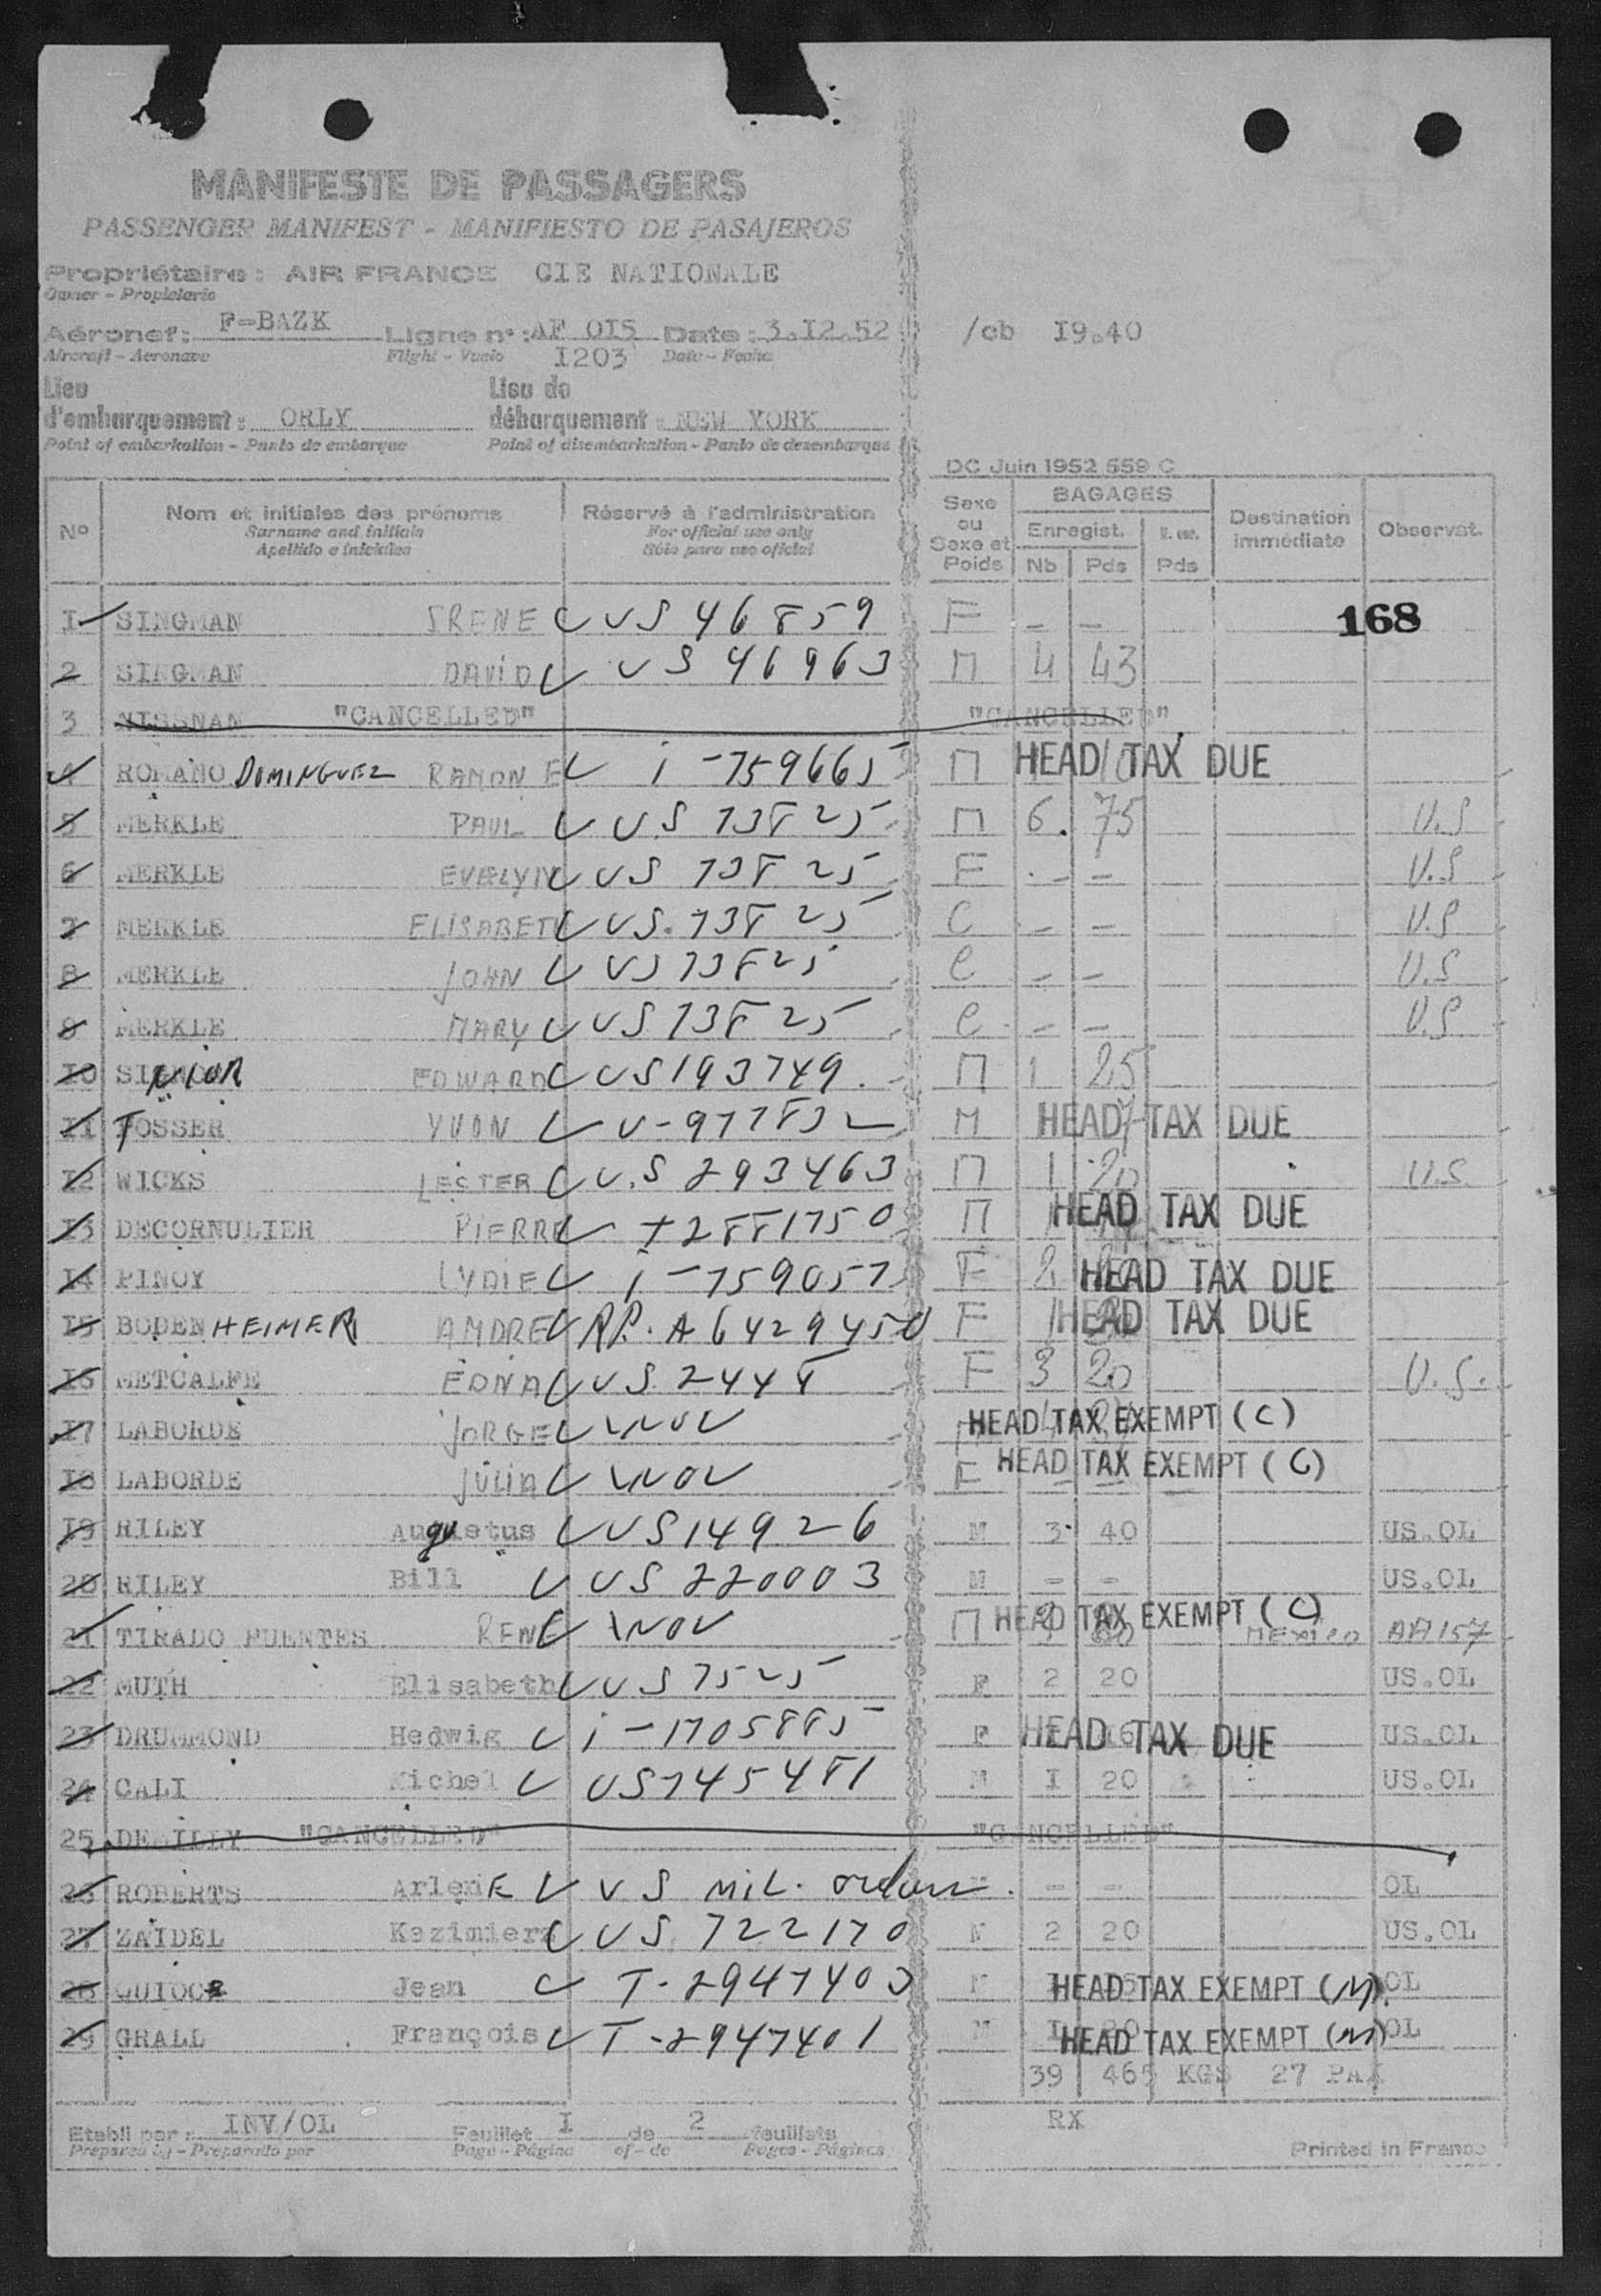 MANIFESTE DE PASSAGERS
PASSENGER MANIFEST - MANIFIESTO DE PASAJEROS
Propriétaire : AIR FRANCE CIE NATIONALE
Owner - Propietario
Aéronef : F-BAZK Ligne n° : AF OI5 Date : 3.I2.52 /cb I9.40
Aircraft - Aeronave Flight - Vuelo I203 Date - Fecha
Lieu d'embarquement : ORLY Lieu de débarquement : NEW YORK
Point of embarkation - Punto de embarque Point of disembarkation - Punto de desembarque
DC Juin 1952 559 C
N° Nom et initiales des prénoms Réservé à l'administration Sexe ou Sexe et Poids BAGAGES Destination immédiate Observat.
Surname and initials For official use only Enregist.
Apellido e iniciales Sólo para uso oficial Nb Pds Pds
I SINGMAN IRENE US 46859 F - - 168
2 SINGMAN DAVID US 46963 M 4 43
3 NISSNAN "CANCELLED" "CANCELLED"
4 ROMANO DOMINGUEZ RAMON E i-759665 M HEAD TAX DUE
5 MERKLE PAUL US 73825 M 6. 75 U.S
6 MERKLE EVELYN US 73825 F - - U.S
7 MERKLE ELISABETH US 73825 C - - U.S
8 MERKLE JOHN US 73825 C - - U.S
9 MERKLE MARY US 73825 C - - U.S
IO EDWARD US 193749 M 1 25
II TOSSER YVON V-977832 M HEAD TAX DUE
I2 WICKS LESTER U.S 293463 M 1 20 U.S.
I3 DECORNULIER PIERRE 2881750 M HEAD TAX DUE
I4 PINOY LYDIE i-759057 F 2 HEAD TAX DUE
I5 BODENHEIMER ANDRE RP. A6429450 F 1 HEAD TAX DUE
I6 METCALFE EDNA US 2448 F 3 20 U.S.
I7 LABORDE JORGE HEAD TAX EXEMPT (C)
I8 LABORDE JULIA F HEAD TAX EXEMPT (C)
I9 RILEY Augustus US 14926 M 3 40 US.OL
20 RILEY Bill US 220003 M - - US.OL
21 TIRADO FUENTES RENE M HEAD TAX EXEMPT (C) MEXICO AA 157
22 MUTH Elisabeth US 7525 F 2 20 US.OL
23 DRUMMOND Hedwig i-1705885 F HEAD TAX DUE US.OL
24 CALI Michel US 745481 M I 20 US.OL
25 DEMILLY "CANCELLED" "CANCELLED"
26 ROBERTS ArlenE US MIL. orders - - OL
27 ZAIDEL Kazimierz US 722170 M 2 20 US.OL
28 Jean T-2947403 M HEAD TAX EXEMPT (M) OL
29 GRALL François T-2947401 M HEAD TAX EXEMPT (M) OL
39 465 KGS 27 PAX
Etabli par : INV/OL Feuillet I de 2 feuillets RX
Prepared by - Preparado por Page - Página of - de Pages - Páginas Printed in France